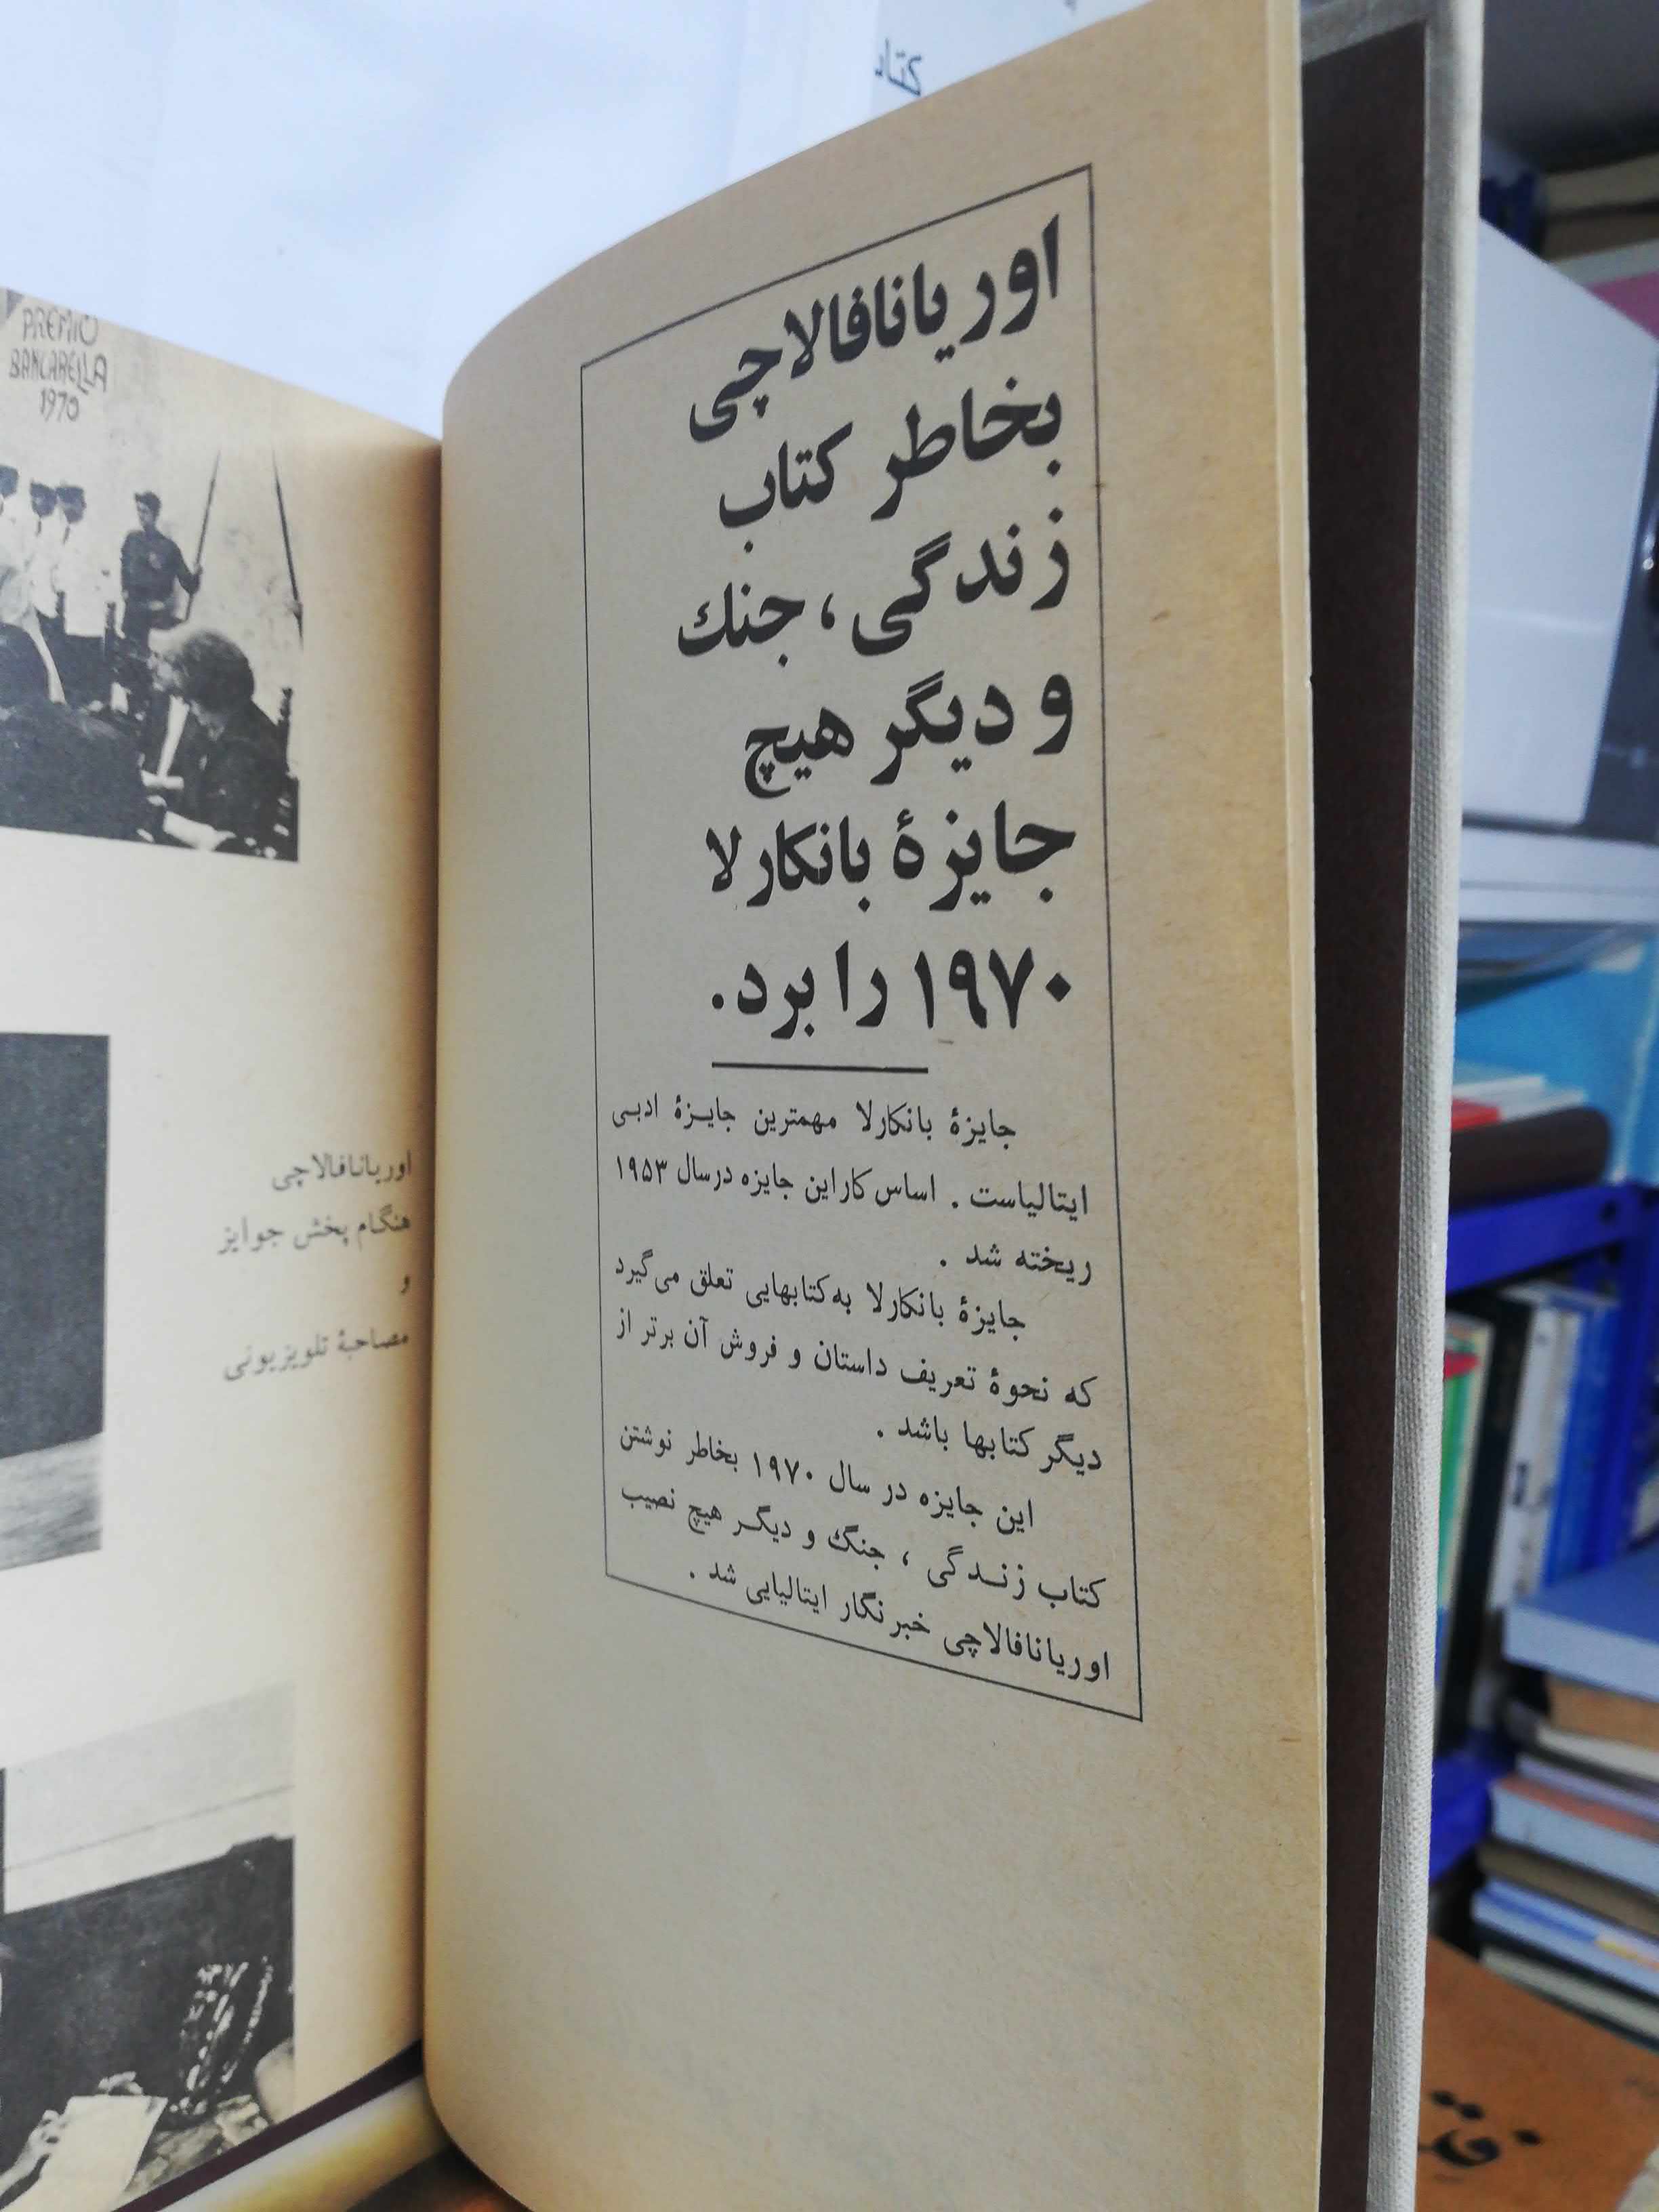 کتاب
اوریانافالاچی
بخاطر کتاب
زندگی، جنك
و دیگر هیچ
جایزهٔ بانکارلا
۱۹۷۰ را برد.
جایزهٔ بانکارلا مهمترین جایزهٔ ادبی
ایتالیاست . اساس کار این جایزه در سال ۱۹۵۳
ریخته شد .
جایزهٔ بانکارلا به‌کتابهایی تعلق می‌گیرد
که نحوهٔ تعریف داستان و فروش آن برتر از
دیگر کتابها باشد .
این جایزه در سال ۱۹۷۰ بخاطر نوشتن
کتاب زندگی ، جنگ و دیگر هیچ نصیب
اوریانافالاچی خبرنگار ایتالیایی شد .
PREMIO
BANCARELLA
1970
اوریانافالاچی
هنگام پخش جوایز
و
مصاحبهٔ تلویزیونی